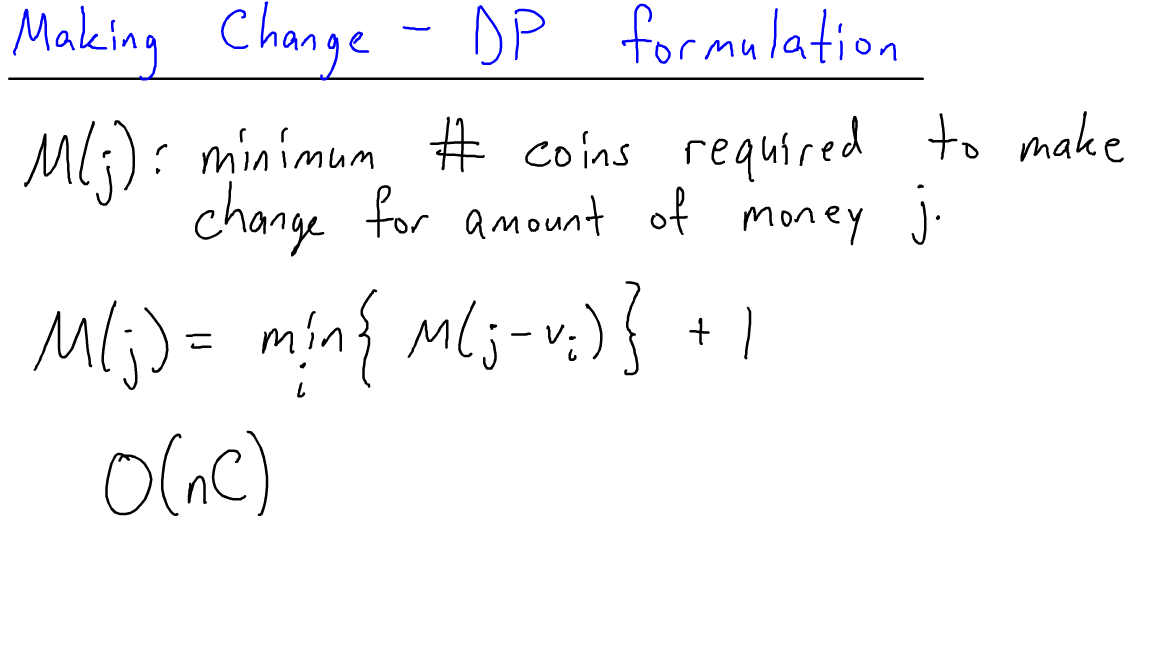 Making Change - DP formulation
M(j): minimum # coins required to make
change for amount of money j.
M(j) = min{ M(j-vᵢ)} + 1
i
O(nC)